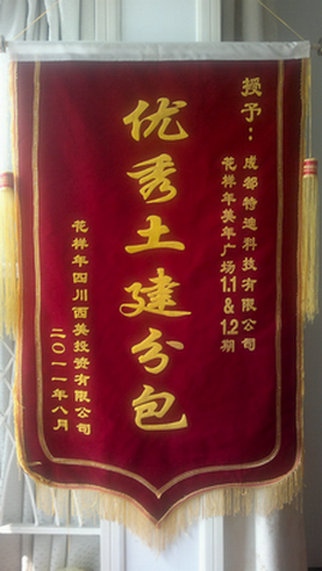 授予：
成都特迪科技有限公司
花样年美年广场1.1&1.2期
优秀土建分包
花样年四川西美投资有限公司
二〇一一年八月